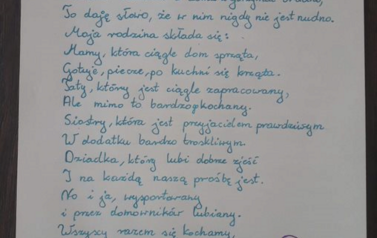 To daję słowo, że w nim nigdy nie jest nudno.
Moja rodzina składa się:
Mamy, która ciągle dom sprząta,
Gotuje, piecze, po kuchni się krząta.
Taty, który jest ciągle zapracowany,
Ale mimo to bardzo kochany.
Siostry, która jest przyjacielem prawdziwym
W dodatku bardzo troskliwym.
Dziadka, który lubi dobrze zjeść
I na każdą naszą prośbę jest.
No i ja, wysportowany
i przez domowników lubiany.
Wszyscy razem się kochamy,